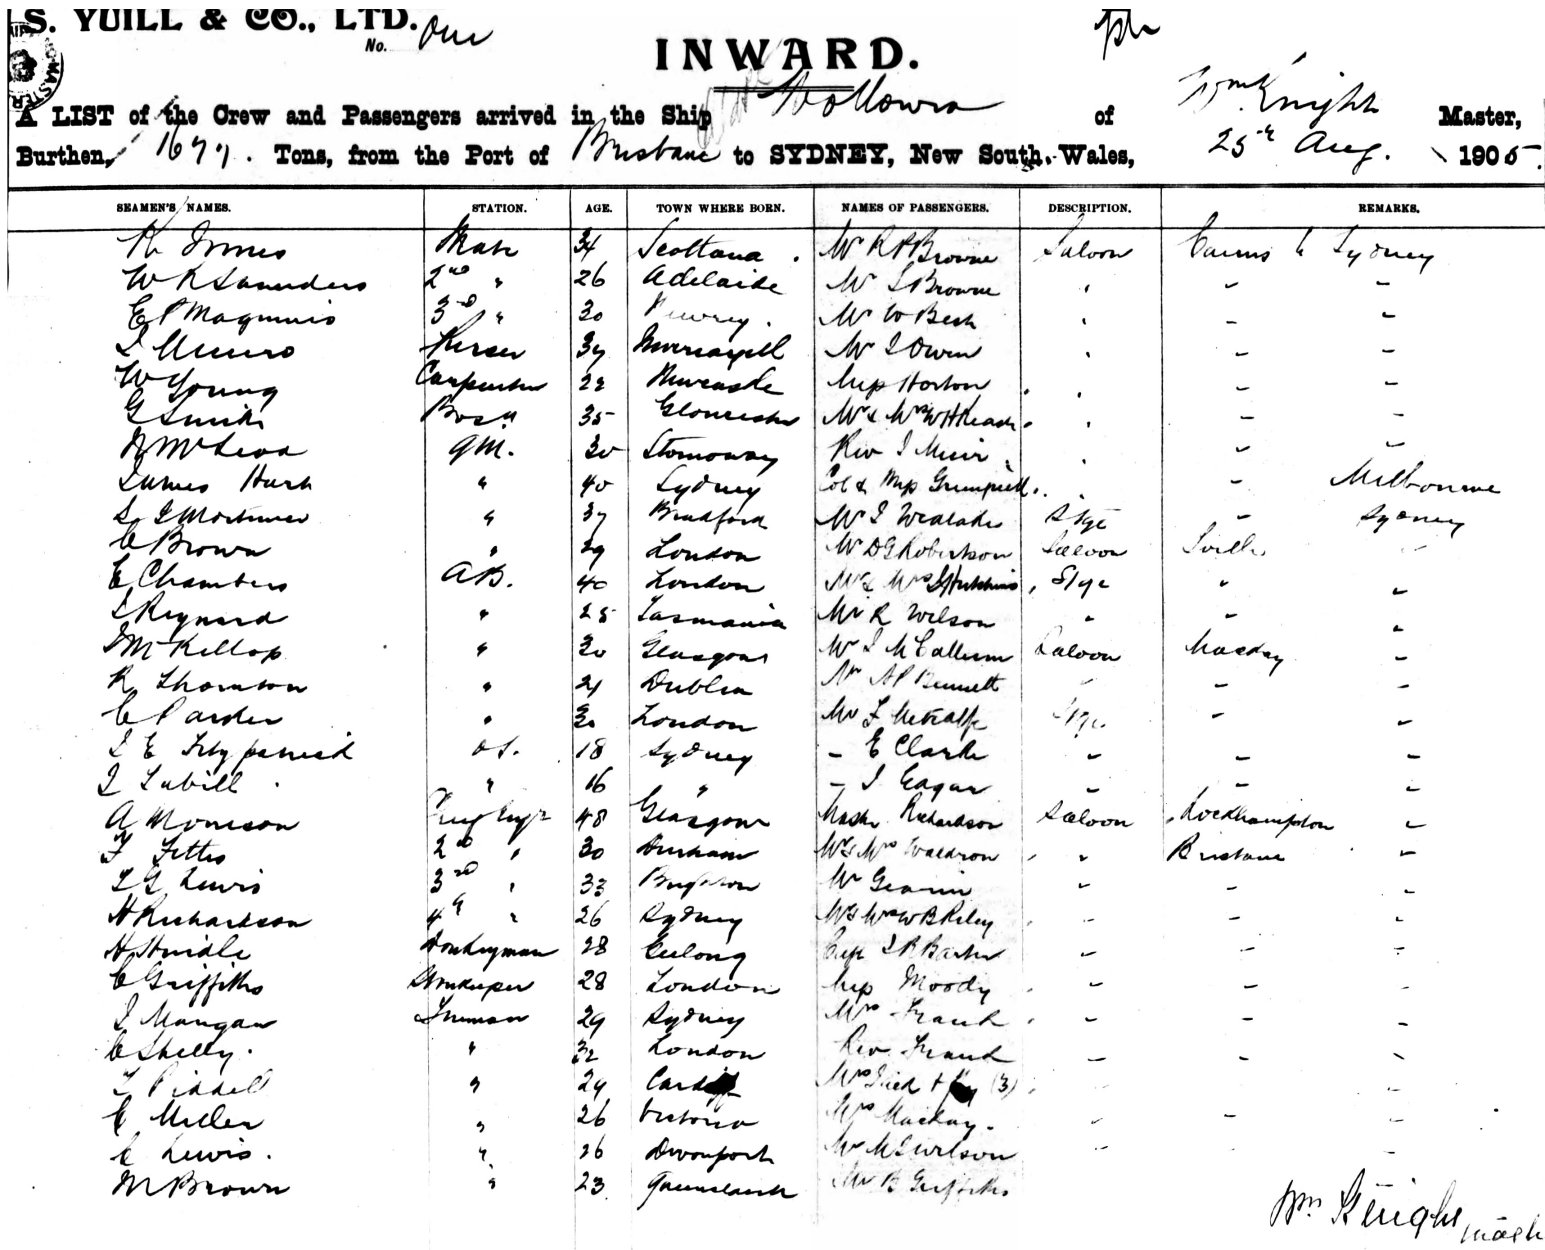 S. YUILL & CO., LTD.
No. One
INWARD.
A LIST of the Crew and Passengers arrived in the Ship Wollowra of Wm. Knight Master,
Burthen, 1677. Tons, from the Port of Brisbane to SYDNEY, New South Wales, 25th Aug. 1905.
SEAMEN'S NAMES. STATION. AGE. TOWN WHERE BORN. NAMES OF PASSENGERS. DESCRIPTION. REMARKS.
Innes Mate 34 Scotland. Mr R Browne Saloon Cairns to Sydney
W R Saunders 2nd " 26 Adelaide Mr Browne " " "
E P Maguinis 3rd " 30 Newry. Mr W Besk " " "
Munro Purser 37 Invercargill Mr Owen " " "
W Young Carpenter 22 Newcastle Miss Horton " " "
G Smith Bosn 35 Gloucester Mr & Mrs " " "
McLeod QM. 30 Stornoway Rev J Muir " " "
James Hart " 40 Sydney Col & Miss " " Melbourne
Mortimer " 37 Bradford Mr Stge " Sydney
C Brown " 29 London Mr D G Robertson Saloon "
E Chambers AB. 40 London Mr & Mrs Hutchins, Stge " "
Reynard " 25 Tasmania Mr R Wilson " " "
McKillop " 30 Glasgow Mr J McCallum Saloon Mackay "
R Thomson " 21 Dublin Mr A P Bennett " " "
C Parker " 30 London Mr F Metcalfe Stge " "
J E Fitzpatrick OS. 18 Sydney - E Clarke " " "
" 16 " - J Eagar " " "
A Morrison 48 Glasgow Master Richardson Saloon Rockhampton "
F 2nd " 30 Durham Mr & Mrs Waldron " Brisbane "
Lewis 3rd " 33 Brighton Mr " " "
H Richardson 4th " 26 Sydney Mr & Mrs W B Riley " " "
H Donkeyman 28 Geelong Barker " " "
C Griffiths Storekeeper 28 London Miss Moody " " "
J Mangan Fireman 29 Sydney Mrs " " "
C Skelly. " 32 London Rev " " "
" 29 Cardiff Mrs (3) " "
C Miller " 26 Victoria Mrs Mackay. " " "
C Lewis. " 26 Devonport Mr Wilson " "
M Brown " 23 Queensland Mr B Griffiths
Wm Knight